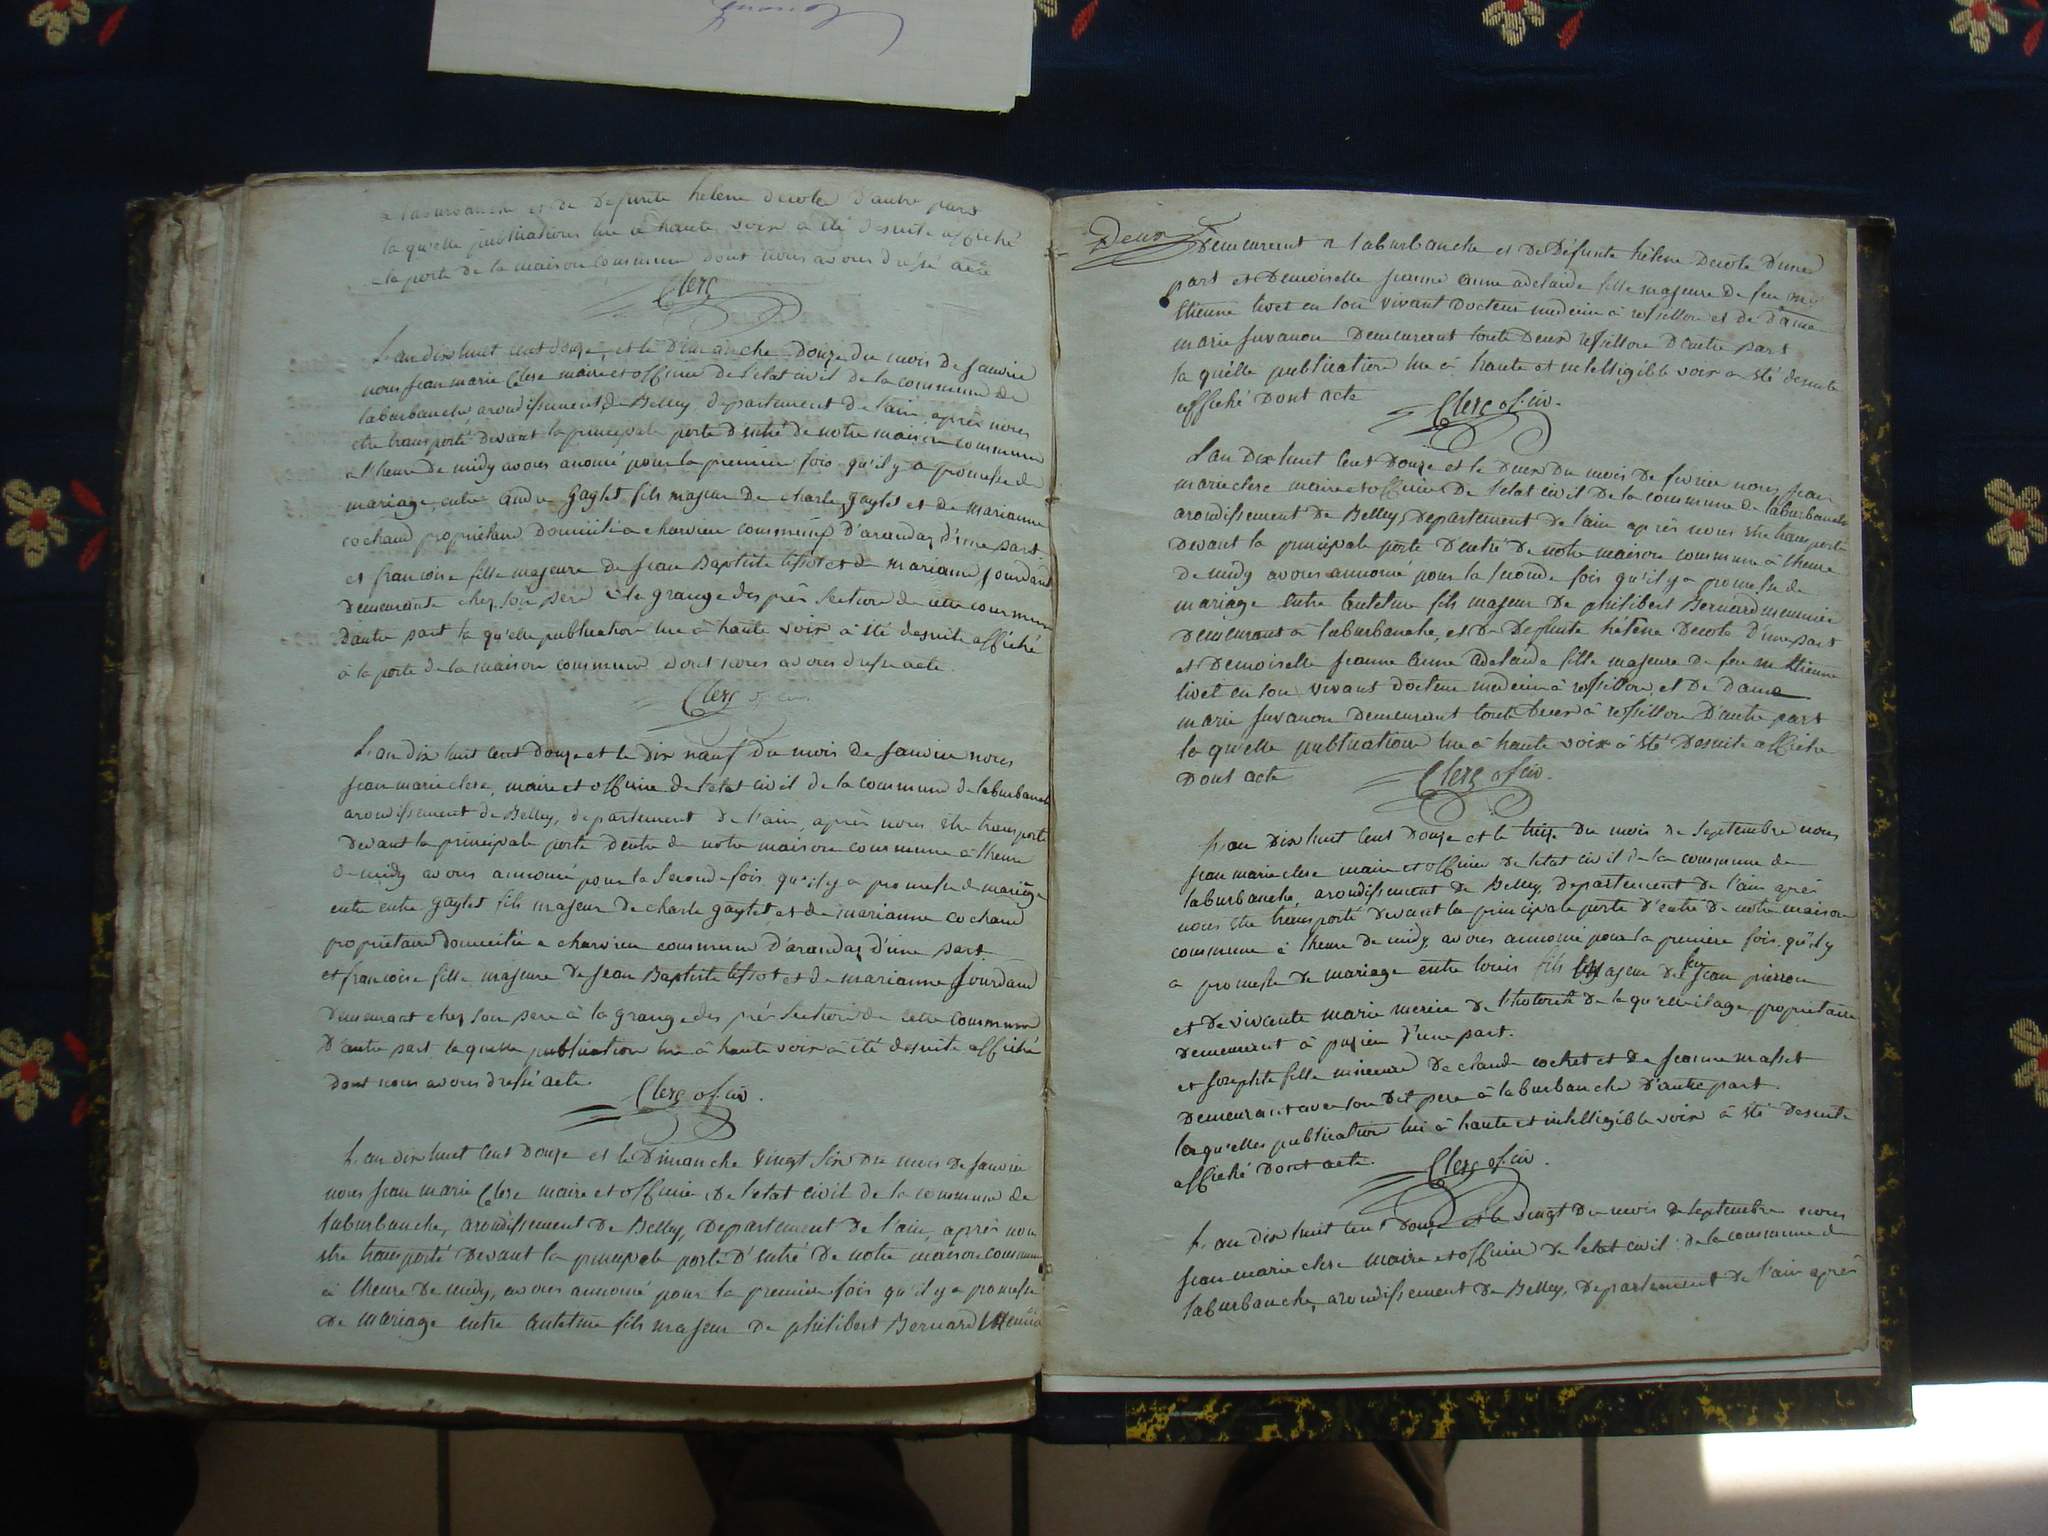 a laburbanche et de Defunte helene decote d'autre part
la qu'elle publications lue à haute voix à été desuite affiché
a la porte de la maison commune dont nous avons dressé acte
Clerc
L'an dix huit cent douze, et le Dimanche Douze du mois de janvier
nous jean marie Clerc maire et officier de l'etat civil de la commune de
laburbanche arondissement de Belley, departement de l'ain, après nous
etre transporté devant la principale porte d'entré de notre maison commune
a l'heure de midy avons anoncé pour la premiere fois qu'il y a promesse de
mariage entre andré gaglet fils majeur de charle gaylet et de marianne
cochaud propriétaire Domicilié a charvieu commune d'arandaz d'une part
et francoise fille majeure de jean Baptiste tissot et de marianne jourdand
Demeurante chez son pere à la grange des prés section de cette commune
d'autre part la qu'elle publication lue à haute voix à été desuite affiché
à la porte de la maison commune dont nous avons dressé acte
Clerc of. civ.
L'an dix huit cent Douze et le dix neuf du mois de janvier nous
jean marie clerc, maire et officier de l'etat civil de la commune de laburbanche
arondissement de Belley, departement de l'ain, après nous être transporté
devant la principale porte d'entré de notre maison commune à l'heure
de midy avons annoncé pour la seconde fois qu'il y a promesse de mariage
entre entre gaylet fils majeur de charle gaylet et de marianne cochaud
propriétaire domicilié a charvieu commune d'arandaz d'une part
et francoise fille majeure de jean Baptiste tissot et de marianne jourdand
Demeurant chez son pere à la grange des prés section de cette commune
D'autre part la quelle publication lue à haute voix à été desuite affiché
dont nous avons dressé acte.
Clerc of. civ.
L'an dix huit cent Douze et le Dimanche vingt six du mois de janvier
nous jean marie Clerc maire et officier de l'etat civil de la commune de
laburbanche, arondissement de Belley, Departement de l'ain, après nous
etre transporté devant la principale porte d'entré de notre maison commune
à l'heure de midy, avons annoncé pour la premiere fois qu'il y a promesse
de mariage entre antelme fils majeur de philibert Bernard Meunié
Deux
Demeurant a laburbanche et de Défunte hélène Decote d'une
part et Demoiselle jeanne anne adelaide fille majeure de feu mr
Etienne livet en son vivant Docteur medecin à rossillon et de dame
marie juvanon Demeurant toute Deux rossillon D'autre part
la qu'elle publication lue à haute et intelligible voix a été desuite
affiché Dont acte
Clerc of. civ.
L'an Dix huit cent Douze et le Deux du mois de fevrier nous jean
marie clerc maire et officier De l'etat civil De la commune de laburbanche
arondissement De Belley, Departement de l'ain après nous etre transporté
Devant la principale porte D'entré De notre maison commune à l'heure
De midy avons annoncé pour la seconde fois qu'il y a promesse de
mariage entre antelme fils majeur De philibert Bernard meunier
Demeurant à laburbanche, et De Defunte hélène Decote D'une part
et Demoiselle jeanne anne adelaide fille majeure de feu mr Etienne
livet en son vivant docteur medecin à rossillon et De Dame
marie juvanon Demeurant toute Deux à rossillon D'autre part
la qu'elle publication lue à haute voix à été Desuite affiché
Dont acte
Clerc of. civ.
L'an Dix huit cent Douze et le treize Du mois de septembre nous
jean marie clerc maire et officier De l'etat civil De la commune de
laburbanche, arondissement de Belley, Departement de l'ain après
nous etre transporté Devant la principale porte d'entré De notre maison
commune à l'heure de midy, avons annoncé pour la premiere fois qu'il y
a promesse de mariage entre louis fils majeur De feu jean pierron
et De vivante marie De la qu'elle propriétaire
Demeurant à d'une part.
et josephte fille mineure De claude cochet et De jeanne masset
Demeurant avec son Dit pere à laburbanche D'autre part.
la qu'elles publication lue à haute et intelligible voix à été Desuite
affiché Dont acte.
Clerc of. civ.
L'an dix huit cent Douze et le vingt Du mois de septembre nous
jean marie clerc maire et officier De l'etat civil de la commune de
laburbanche, arondissement De Belley, Departement De l'ain après